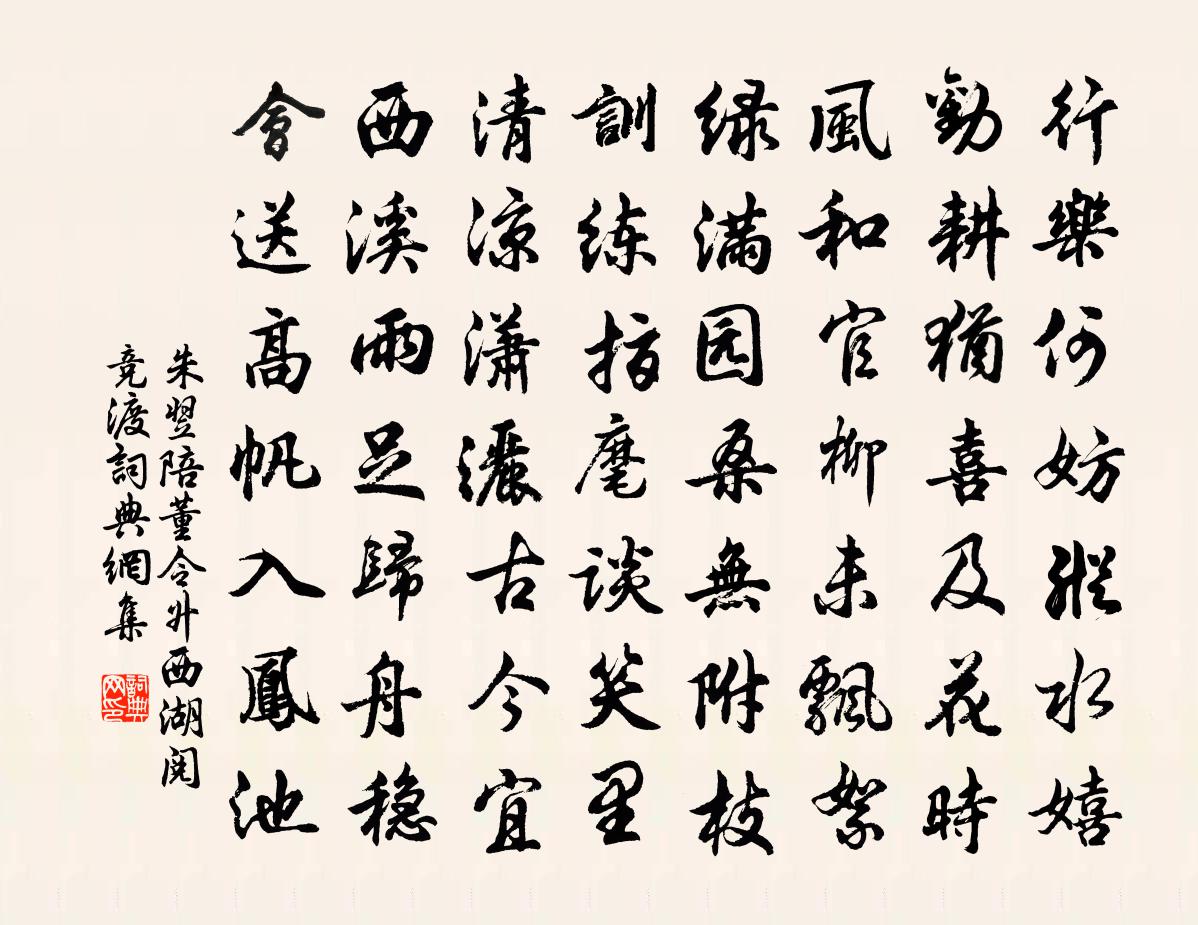 行樂何妨縱水嬉
勸耕猶喜及花時
風和官柳未飄絮
绿滿园桑無附枝
訓练指麾談笑里
清凉瀟灑古今宜
西溪雨足歸舟穏
會送高帆入鳳池
朱翌陪董令升西湖閱
竞渡詞典網集
詞典网印